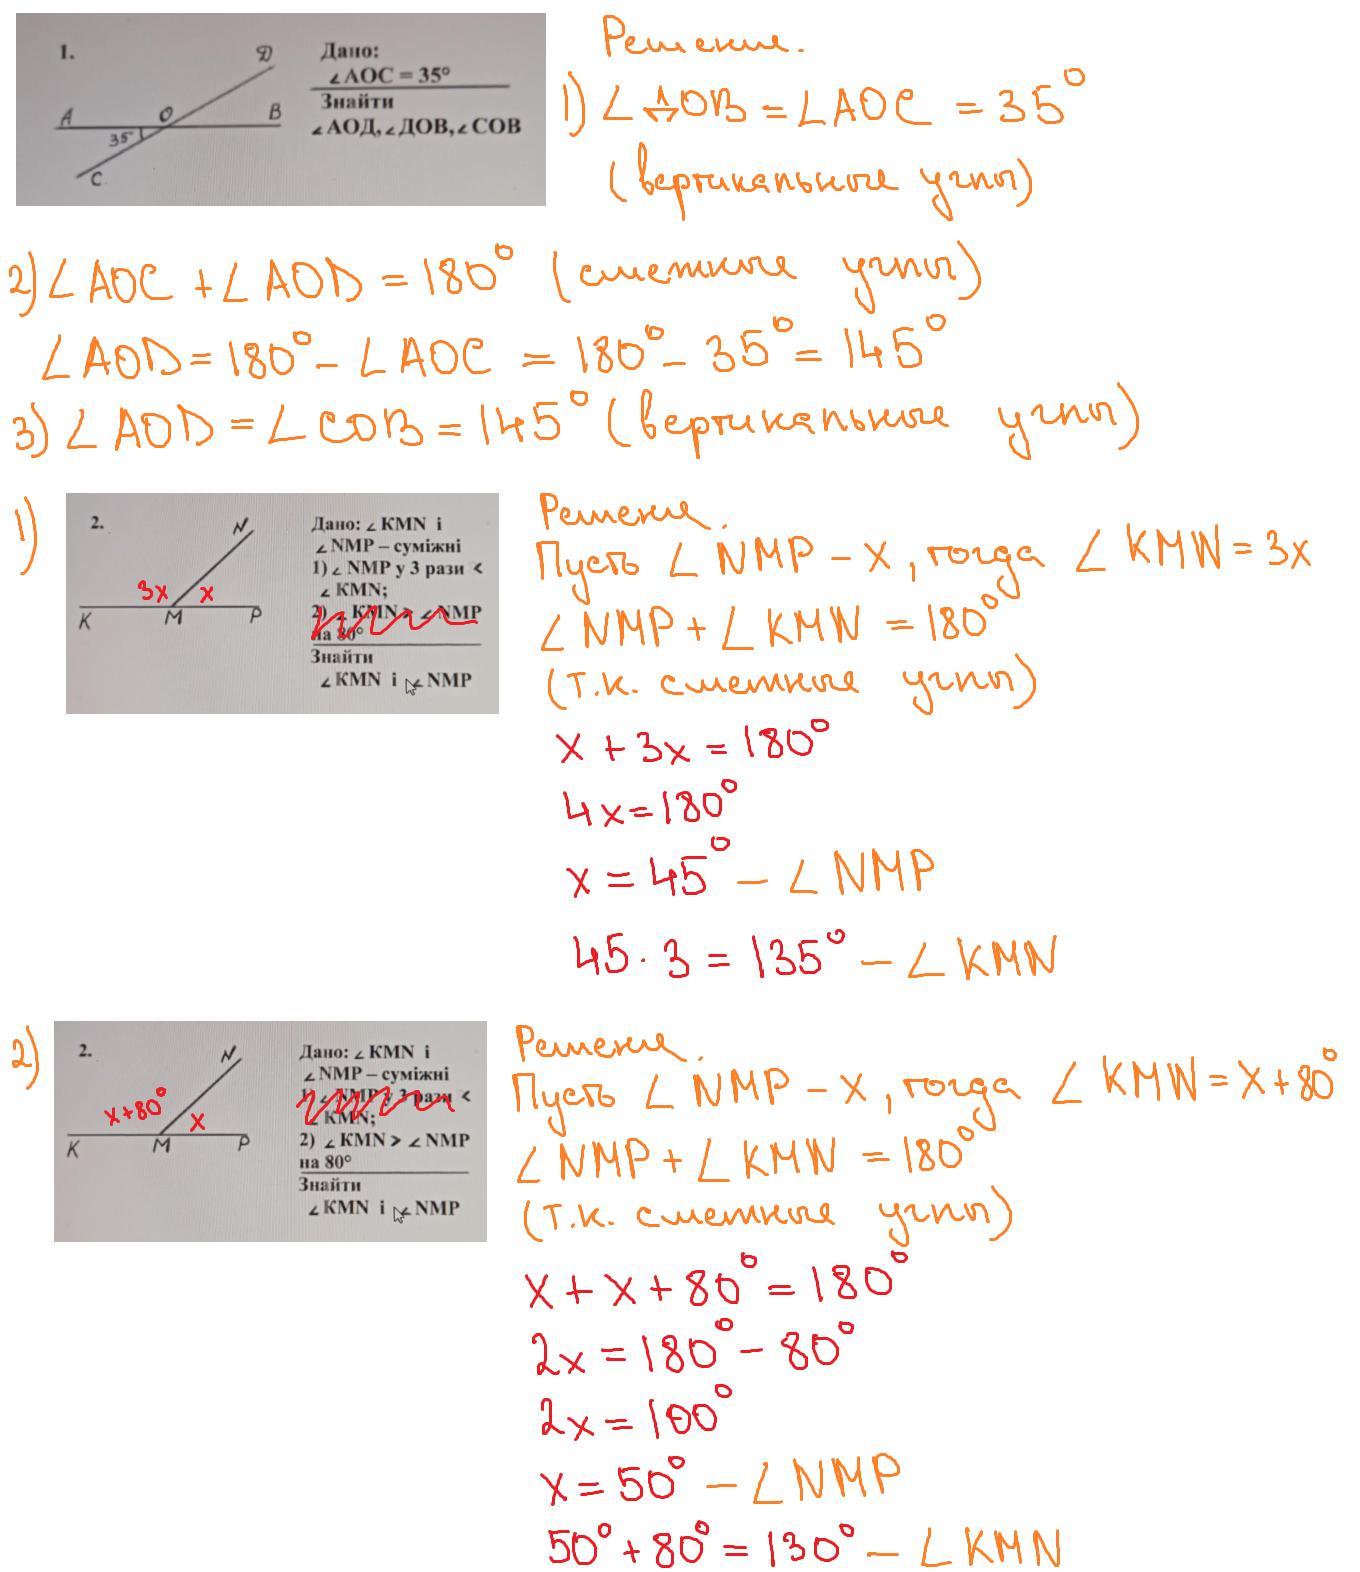 1.
Д
A
O
B
35°
C
Дано:
∠AOC = 35°
Знайти
∠АОД, ∠ДОВ, ∠СОВ
Решение.
1) ∠ДОВ = ∠AOC = 35°
(вертикальные углы)
2) ∠AOC + ∠AOD = 180° (смежные углы)
∠AOD = 180° - ∠AOC = 180° - 35° = 145°
3) ∠AOD = ∠COB = 145° (вертикальные углы)
1)
2.
N
3x
x
K
M
P
Дано: ∠KMN і
∠NMP – суміжні
1) ∠ NMP у 3 рази <
∠KMN;
2) ∠ KMN > ∠NMP
на 80°
Знайти
∠KMN і ∠NMP
Решение.
Пусть ∠NMP - x, тогда ∠KMN = 3x
∠NMP + ∠KMN = 180°
(т.к. смежные углы)
x + 3x = 180°
4x = 180°
x = 45° - ∠NMP
45 · 3 = 135° - ∠KMN
2)
2.
N
x+80°
x
K
M
P
Дано: ∠KMN і
∠NMP – суміжні
1) ∠ NMP у 3 рази <
∠KMN;
2) ∠KMN > ∠NMP
на 80°
Знайти
∠KMN і ∠NMP
Решение.
Пусть ∠NMP - x, тогда ∠KMN = x + 80°
∠NMP + ∠KMN = 180°
(т.к. смежные углы)
x + x + 80° = 180°
2x = 180° - 80°
2x = 100°
x = 50° - ∠NMP
50° + 80° = 130° - ∠KMN